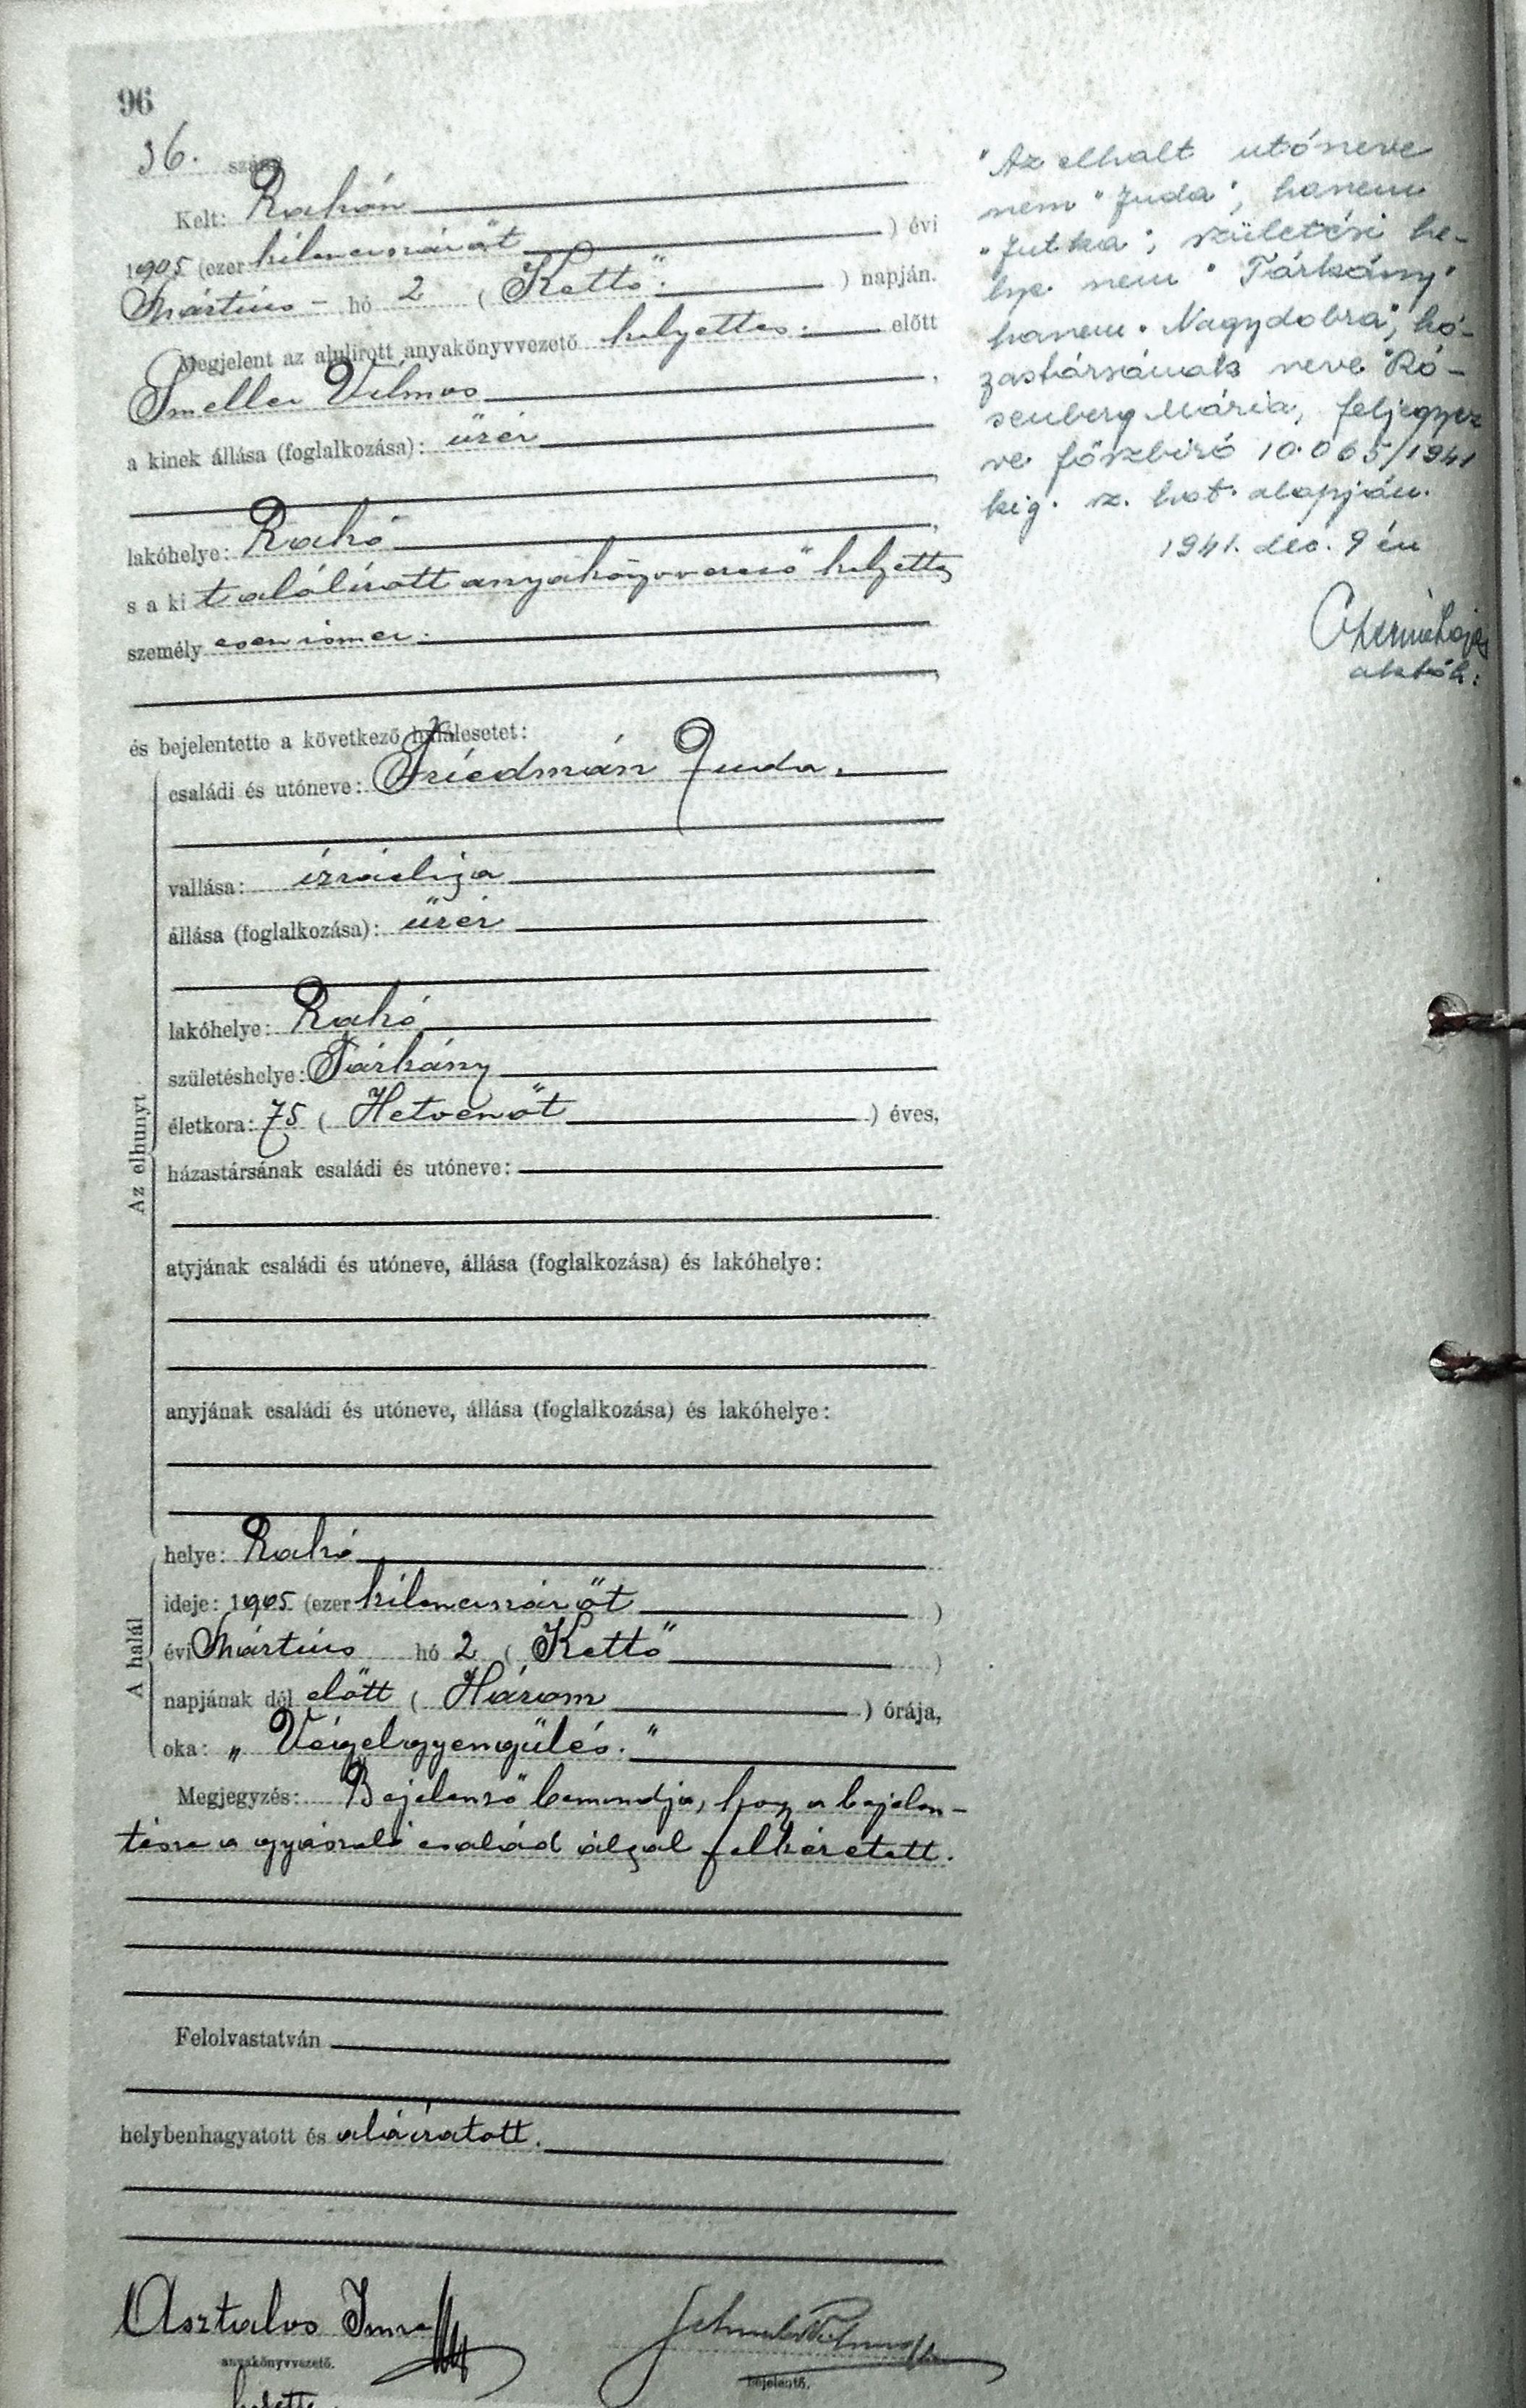 96
36. szám
Kelt: Rahón
1905 (ezer kilencszázöt ) évi
Március - hó 2 ( Kettő ) napján.
Megjelent az alulirott anyakönyvvezető helyettes előtt
Smeller Vilmos,
a kinek állása (foglalkozása): űzér
lakóhelye: Rahó,
s a ki t alólírott anyakönyvvezető helyettes
személy esen ismer.
és bejelentette a következő halálesetet:
Az elhunyt
családi és utóneve: Friedmán Juda.
vallása: ízráelita
állása (foglalkozása): űzér
lakóhelye: Rahó
születéshelye: Tárkány
életkora: 75 ( Hetvenöt ) éves,
házastársának családi és utóneve:
atyjának családi és utóneve, állása (foglalkozása) és lakóhelye:
anyjának családi és utóneve, állása (foglalkozása) és lakóhelye:
A halál
helye: Rahó
ideje: 1905 (ezer kilencszázöt )
évi Március hó 2 ( Kettő )
napjának dél előtt ( Három ) órája,
oka: „ Végelgyengülés. "
Megjegyzés: Bejelentő bemondja, hogy a bejelen-
tésre a gyászoló család által felkéretett.
Felolvastatván
helybenhagyatott és aláíratott.
Asztalos Imre
anyakönyvvezető. bejelentő.
"Az elhalt utóneve
nem "Juda", hanem
"Jutka", születési he-
lye nem "Tárkány"
hanem "Nagydobra", há-
zastársának neve "Ró-
senberg Mária, feljegyez
ve főszbiró 10.065/1941
kig. sz. hat. alapján.
1941. dec. 9 én